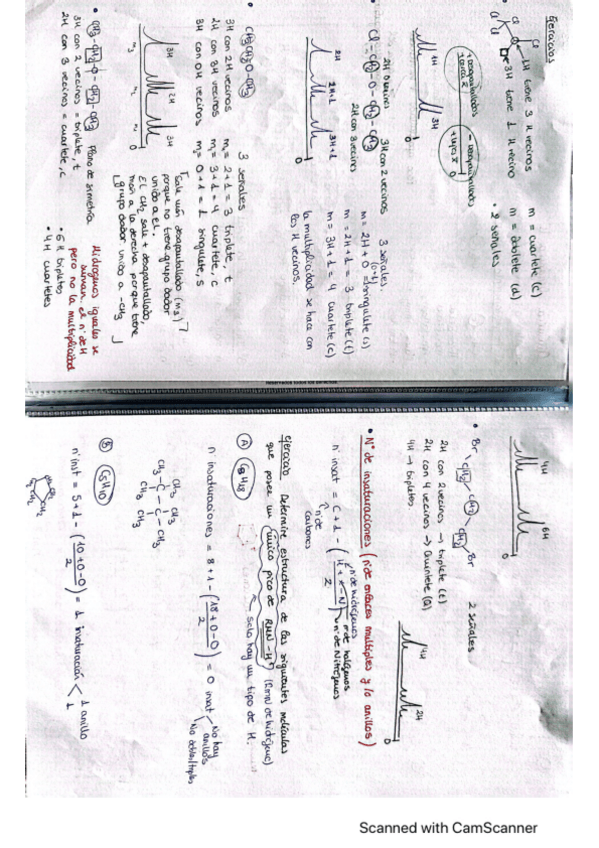 Ejercicios
Cl
Cl
Cl
Cl
1H tiene 3 H vecinos m = cuartete (c)
3H tiene 1 H vecino m = doblete (d)
• 2 señales
+ desapantallados
- desapantallados
1H
3H
0
• Cl-CH2-O-CH2-CH3
2H 0 vecinos
3H con 2 vecinos
2H con 3 vecinos
3 señales.
m = 2H + 1 = 3 triplete (t)
m = 3H + 1 = 4 cuartete (c)
la multiplicidad se hace con
los H vecinos.
0
• CH3CH2O-CH3
3 señales
3H con 2H vecinos m1 = 2+1 = 3 triplete, t
2H con 3H vecinos m2 = 3+1 = 4 cuartete, c
3H con 0H vecinos m3 = 0+1 = 1 singulete, s
3H
2H
3H
0
Sale más desapantallado (m3)
porque no tiene grupo dador
unido a el.
El CH2 sale + desapantallado,
más a la derecha porque tiene
grupo dador unido a -CH3
• CH3-CH2-O-CH2-CH3 Plano de simetría
3H con 2 vecinos = triplete, t
2H con 3 vecinos = cuartete, c
Hidrogenos iguales se
suman el nº de H
pero no la multiplicidad
• 6H tripletes
• 4H cuartetes
4H
6H
0
• Br CH2 CH2 CH2 Br
2 señales
2H con 2 vecinos → triplete (t)
2H con 4 vecinos → Quintete (Q)
4H → tripletes
4H
2H
0
• Nº de insaturaciones (nº de enlaces multiples y/o anillos)
nº insat = C + 1 - (H + X - N / 2)
nº de carbonos
nº de hidrógenos
nº de halógenos
nº de Nitrógenos
Ejercicio Determine estructura de las siguientes moléculas
que posee un único pico de RMN-H (RMN de hidrógeno)
Solo hay un tipo de H.
A) C8H18
nº insaturaciones = 8 + 1 - (18+0-0 / 2) = 0 insat
No hay anillos
No dobles/triples
CH3 CH3
CH3-C-C-CH3
CH3 CH3
B) C5H10
nº inst = 5 + 1 - (10+0-0 / 2) = 1 insaturación
1 anillo
1
Scanned with CamScanner